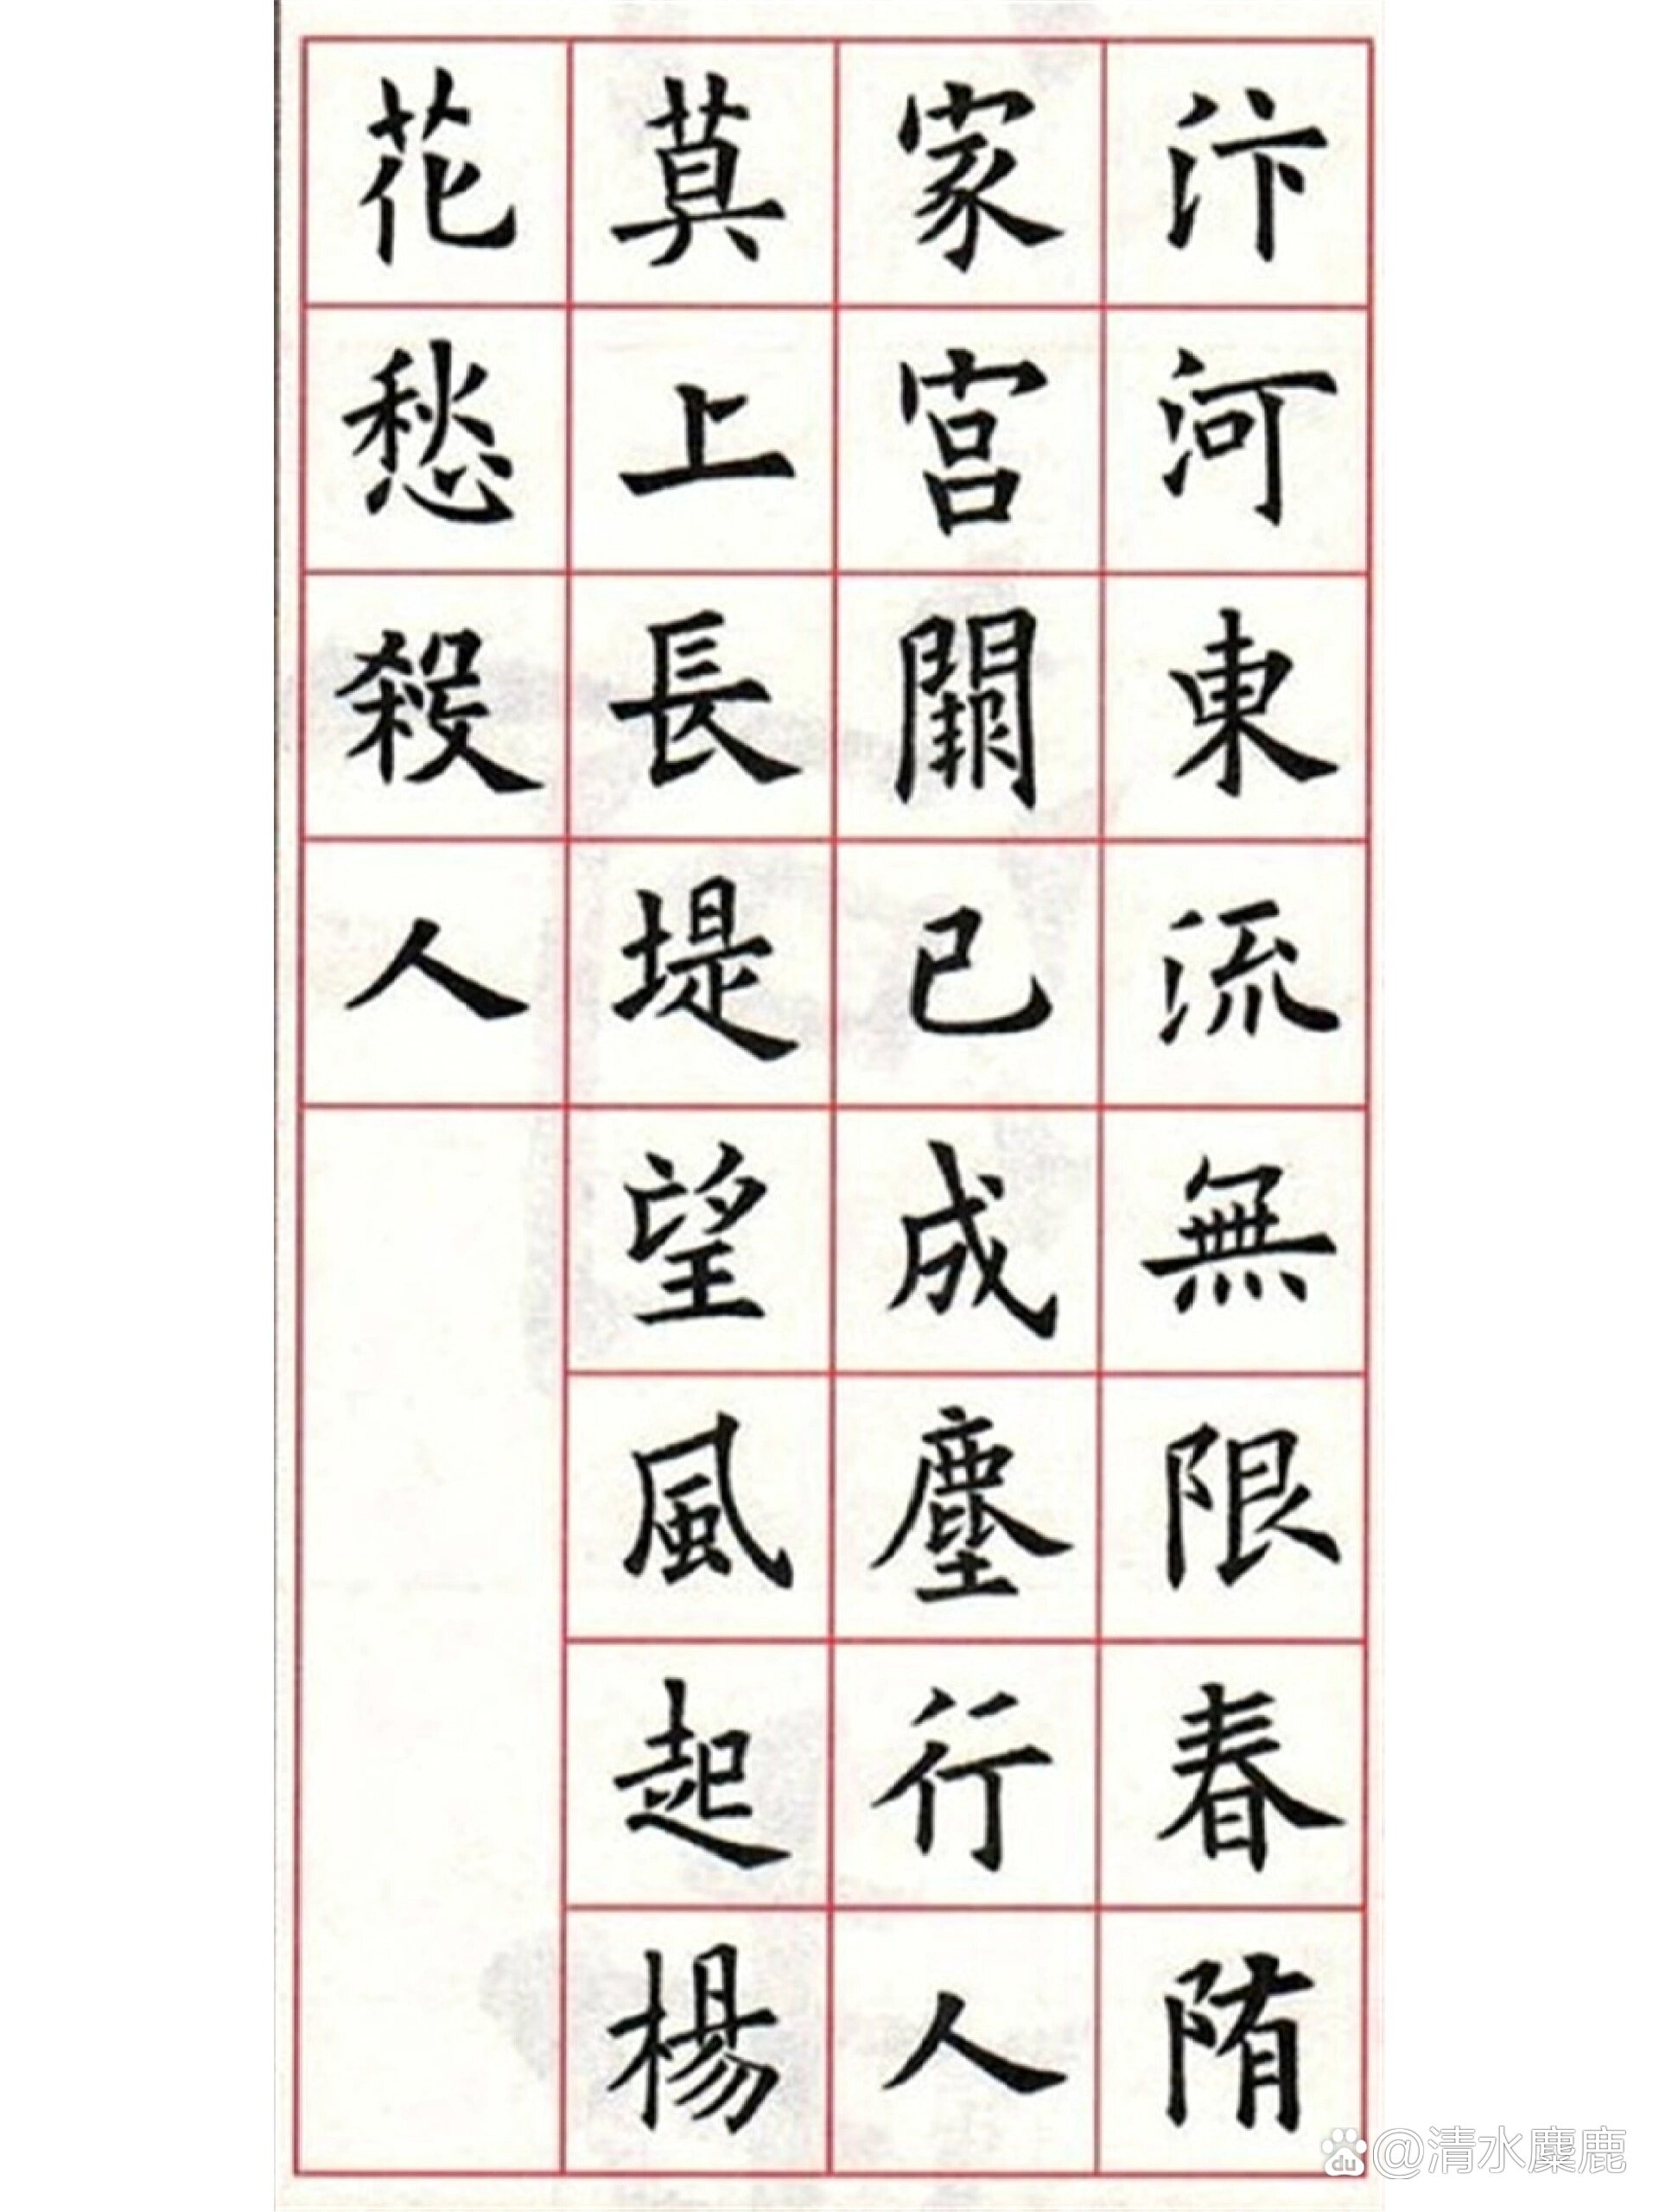 汴河東流無限春隋
家宫闕已成塵行人
莫上長堤望風起楊
花愁殺人
du @清水麋鹿